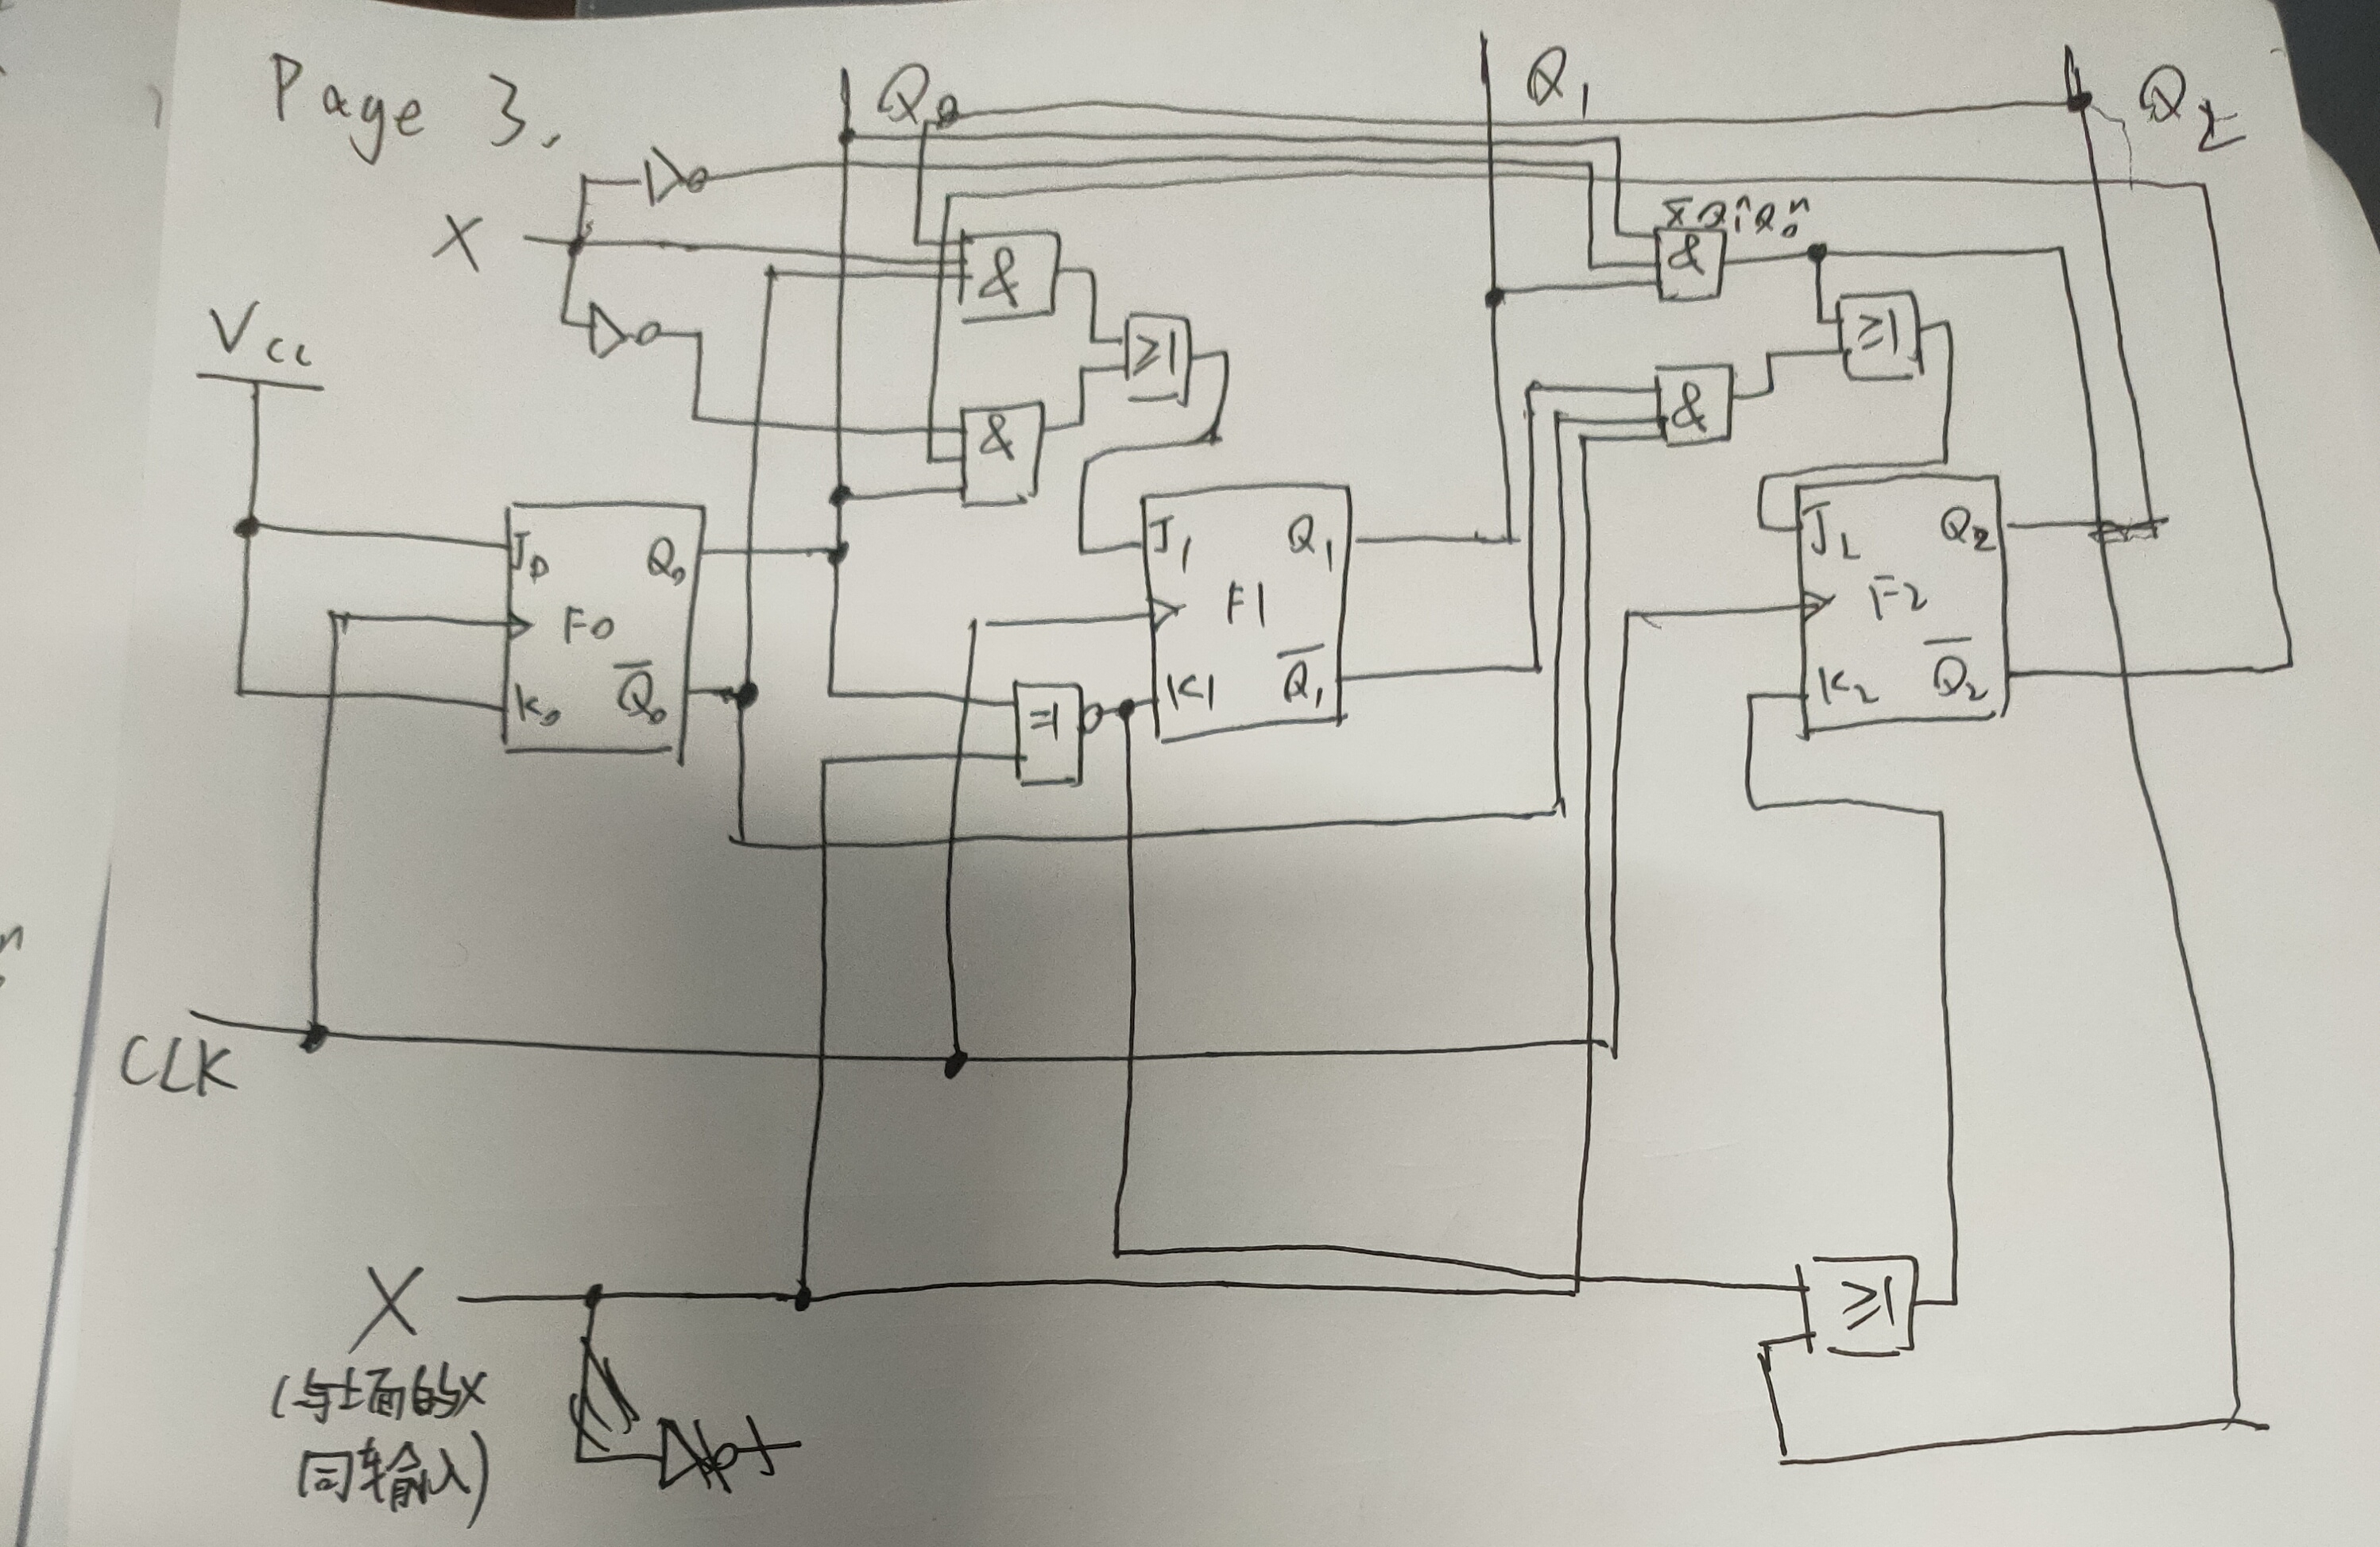 Page 3.
Q0
Q1
Q2
X
X̄Q1ⁿQ0ⁿ
&
&
≥1
≥1
Vcc
&
&
J0 Q0
F0
K0 Q̄0
J1 Q1
F1
K1 Q̄1
J2 Q2
F2
K2 Q̄2
=1
CLK
X
≥1
(与上面的X
同输入)
n